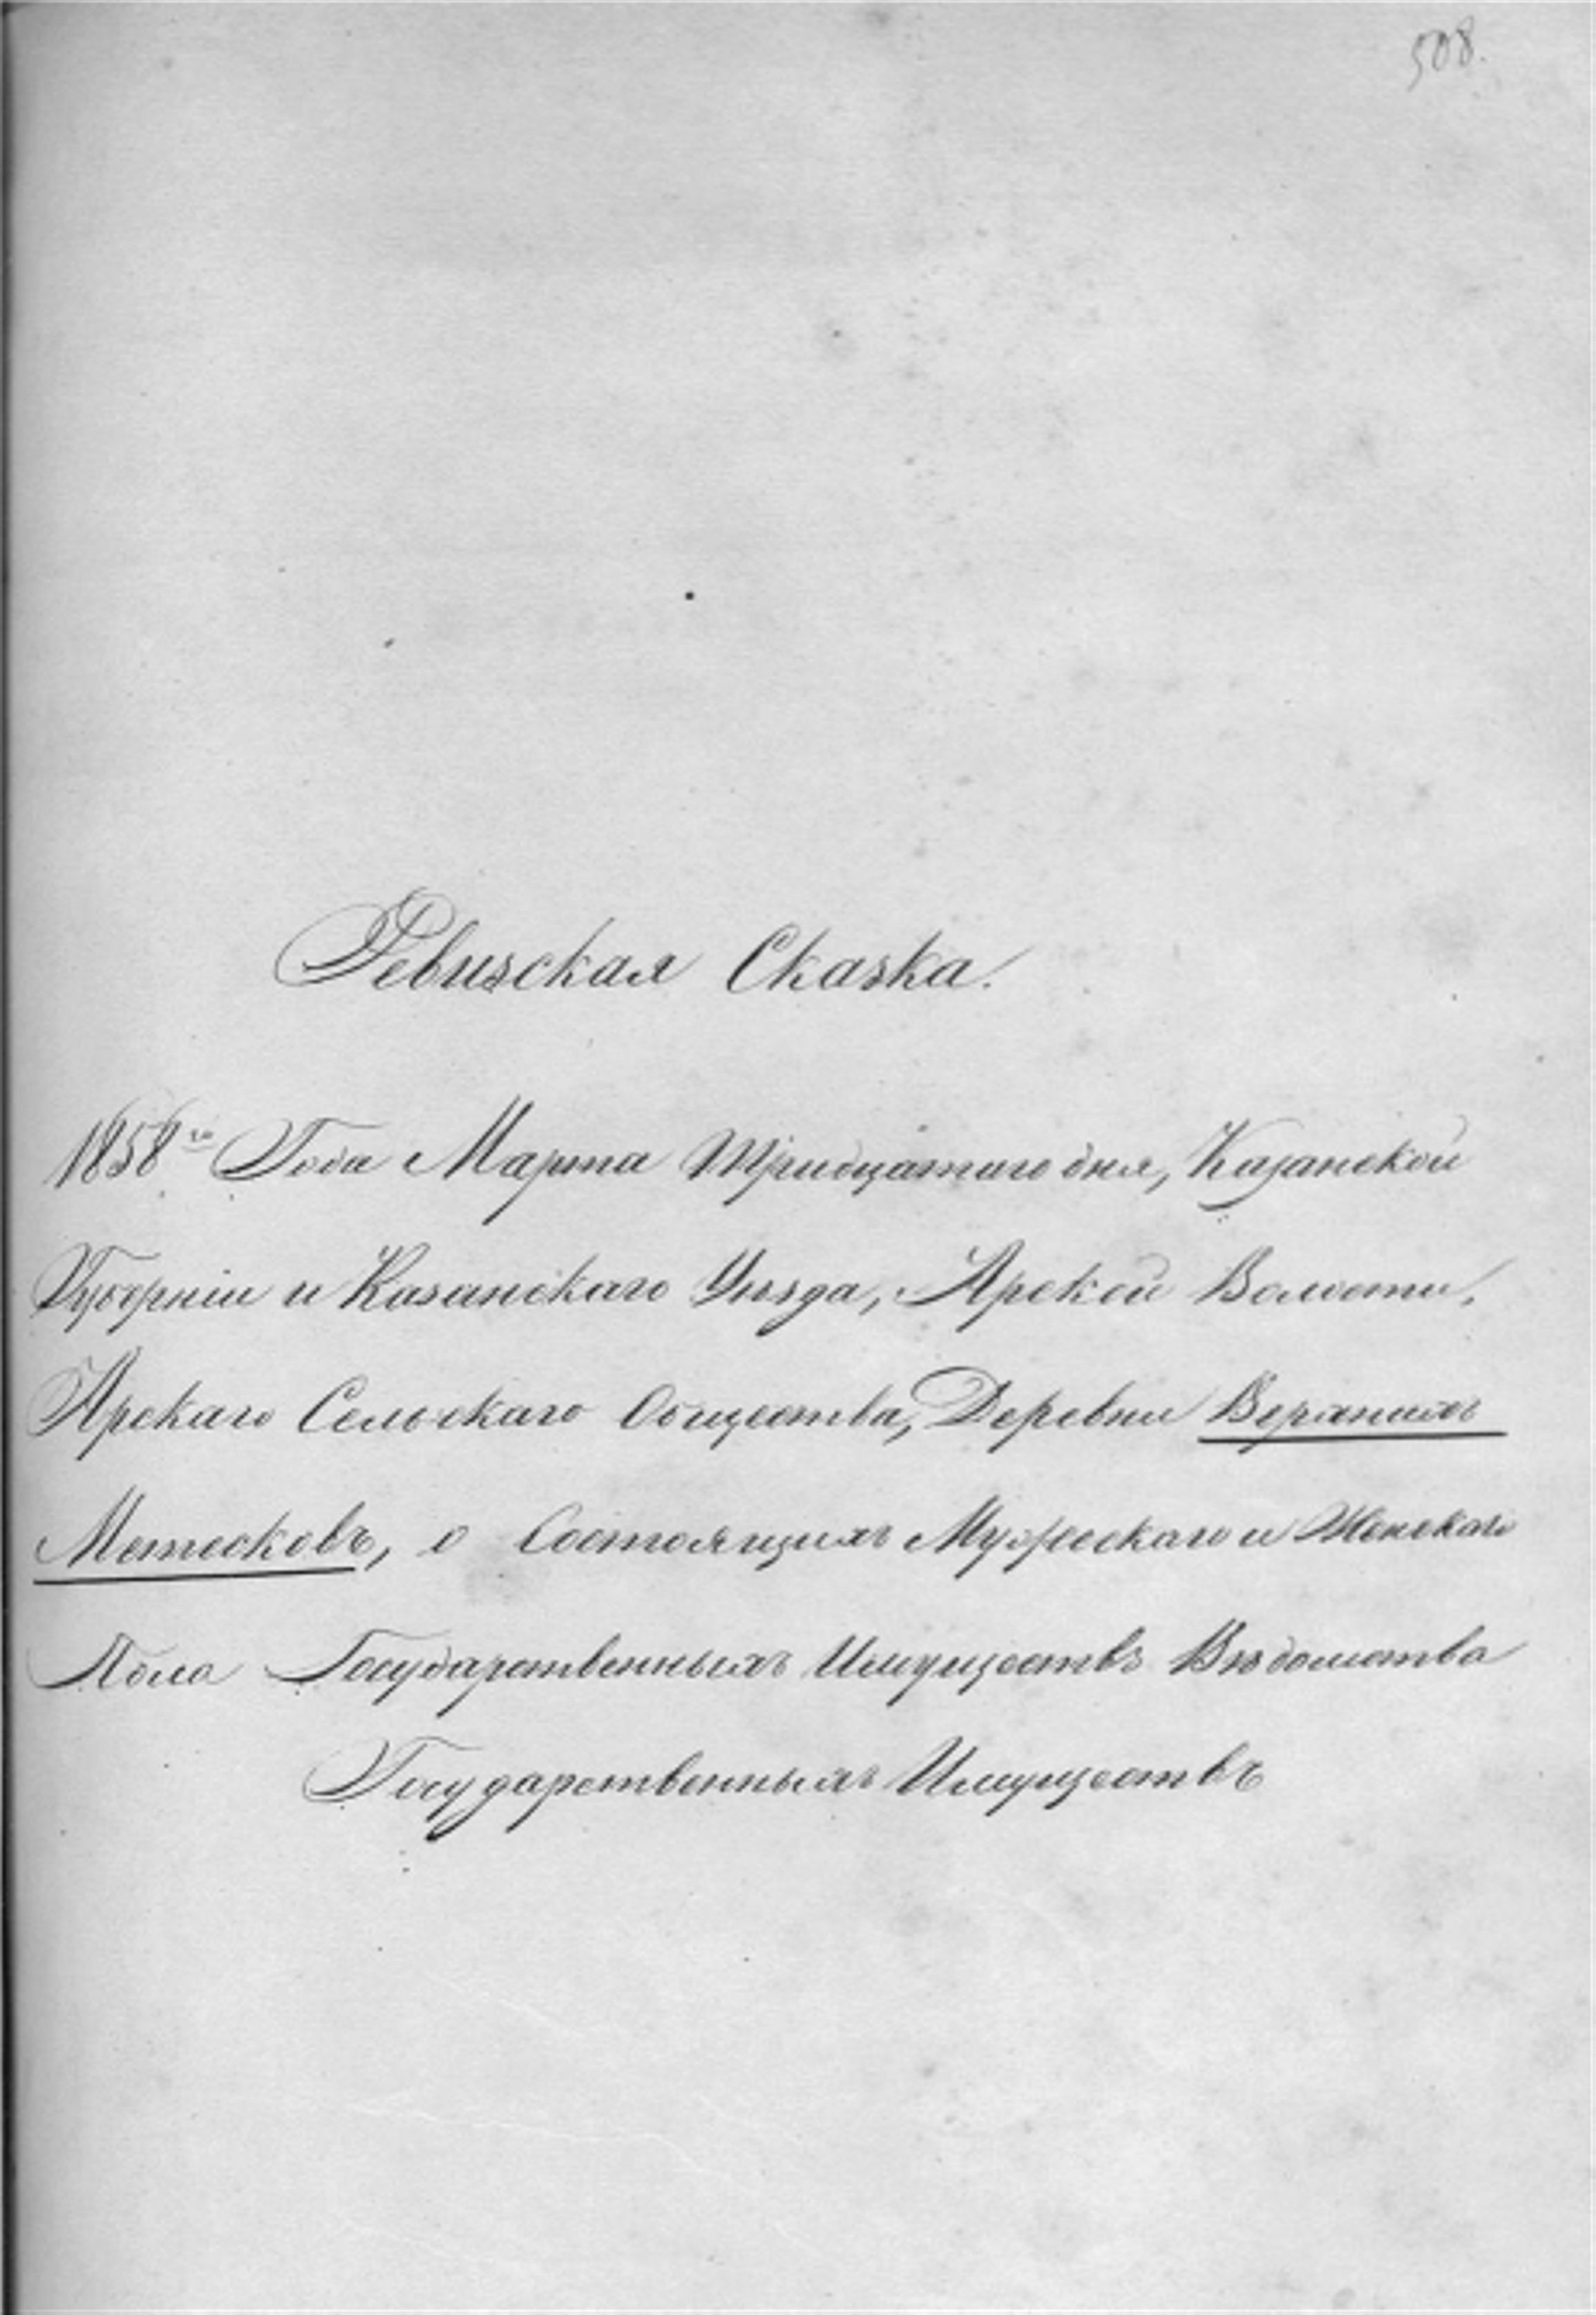 508.
Ревизская Сказка.
1858го Года Марта Тридцатаго дня, Казанской
Губерніи и Казанскаго Уѣзда, Арской Волости,
Арскаго Сельскаго Общества, Деревни Верхнихъ
Метесковъ, о Состоящихъ Мужескаго и Женскаго
Пола Государственныхъ Имуществъ Вѣдомства
Государственныхъ Имуществъ